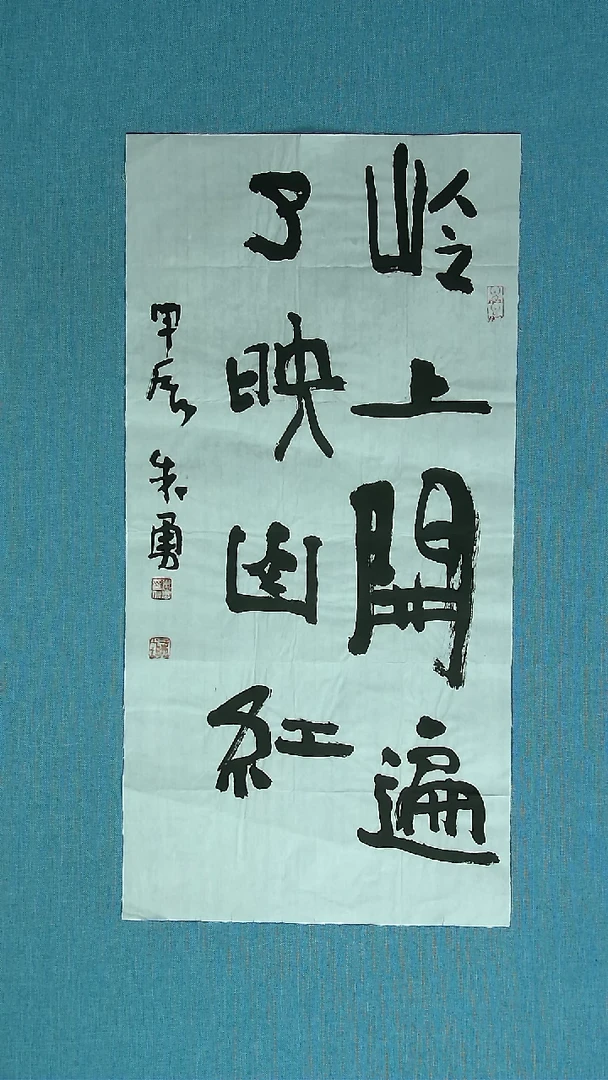 岭上開遍
了映山紅
甲辰 朱勇